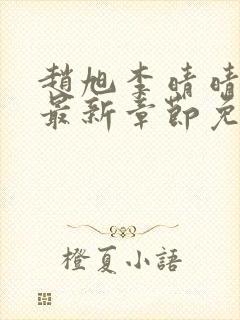 趙旭李晴晴
最新章節免
橙夏小語